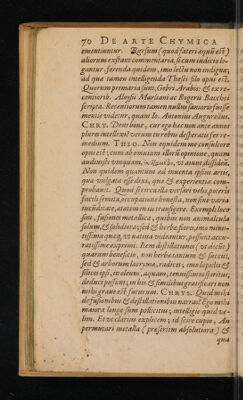 70 DE ARTE CHYMICA
ementiuntur. Rursum (quod fateri æquũ est)
aliorum exstant commentaria, si cum iudicio le-
gantur, ferenda quidem, imo bella non indigna;
ad quæ tamen intelligenda Thesei filo opus est.
Quorum prima sunt, Gebri Arabis: & ex re-
centiorib. Aloysii Marliani ac Rogerii Bacchoi
scripta. Recentiorum tamen nullus sanior is fuisse
mentis videtur, quam Io. Antonius Augurellus.
CHRY. Dont bine, cur ego hæc non ante annos
plures intellexi? verum in rebus desperatis serò re-
medium. THEO. Non equidem me consultore
opus est, cum ab omnibus illorũ opinione, quam
audiuisti vnquam, ut aiunt, dissideã.
Non quidem quantum ad inuenta ipsius artis,
quæ vulgata esse dixi, quæ & experientia com-
probant. Quod si ea illa
facili semita, occupationi bonesta, non sine varia
iucunditate, ætatem meis transigere. Exempli loco
sint, fusiones metallicæ, quibus non animalcula
solum, & subdiuaricas, & herbæ fieri, imo minu-
tissima quæq. vt natura videantur, possunt accu-
ratissimè exprimi. Item distillationes (vt dicũt)
quarum beneficio, non herbæ tantum & succi,
sed & arborum lacrymæ, radices, imo lapides &
silices ipsi, in oleum, aquam, tenuissimos spiritus,
deduci possunt, in his & similibus gratificari non
mihi graue est futurum. CHRYS. Quid mihi
de fusionibus & destillationibus narras? Ego mihi
maiora longe sum pollicitus, intelligis quid ve-
lim. Et vt clarius explicem, id scire cupio, An
permutari metalla (præsertim absolutiora) &
quæ